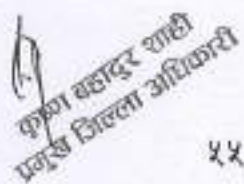 कृष्ण बहादुर शाही
प्रमुख जिल्ला अधिकारी
५५